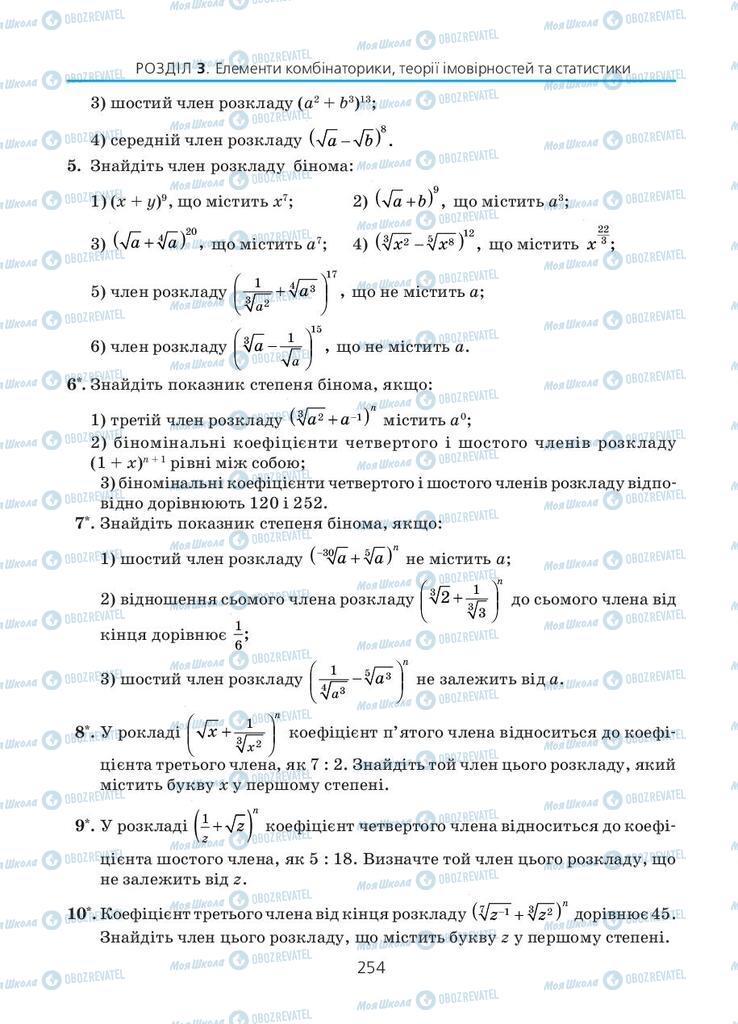 РОЗДІЛ 3. Елементи комбінаторики, теорії імовірностей та статистики
3) шостий член розкладу (a² + b³)¹³;
4) середній член розкладу (√a − √b)⁸.
5. Знайдіть член розкладу бінома:
1) (x + y)⁹, що містить x⁷; 2) (√a + b)⁹, що містить a³;
3) (√a + ∜a)²⁰, що містить a⁷; 4) (∛x² − ⁵√x⁸)¹², що містить x^(22/3);
5) член розкладу (1/∛a² + ∜a³)¹⁷, що не містить a;
6) член розкладу (∛a − 1/√a)¹⁵, що не містить a.
6*. Знайдіть показник степеня бінома, якщо:
1) третій член розкладу (∛a² + a⁻¹)ⁿ містить a⁰;
2) біноміальні коефіцієнти четвертого і шостого членів розкладу
(1 + x)ⁿ⁺¹ рівні між собою;
3) біноміальні коефіцієнти четвертого і шостого членів розкладу відпо-
відно дорівнюють 120 і 252.
7*. Знайдіть показник степеня бінома, якщо:
1) шостий член розкладу (⁻³⁰√a + ⁵√a)ⁿ не містить a;
2) відношення сьомого члена розкладу (∛2 + 1/∛3)ⁿ до сьомого члена від
кінця дорівнює 1/6;
3) шостий член розкладу (1/∜a³ − ⁵√a³)ⁿ не залежить від a.
8*. У рокладі (√x + 1/∛x²)ⁿ коефіцієнт п’ятого члена відноситься до коефі-
цієнта третього члена, як 7 : 2. Знайдіть той член цього розкладу, який
містить букву x у першому степені.
9*. У розкладі (1/z + √z)ⁿ коефіцієнт четвертого члена відноситься до коефі-
цієнта шостого члена, як 5 : 18. Визначте той член цього розкладу, що
не залежить від z.
10*. Коефіцієнт третього члена від кінця розкладу (⁷√z⁻¹ + ∛z²)ⁿ дорівнює 45.
Знайдіть член цього розкладу, що містить букву z у першому степені.
254